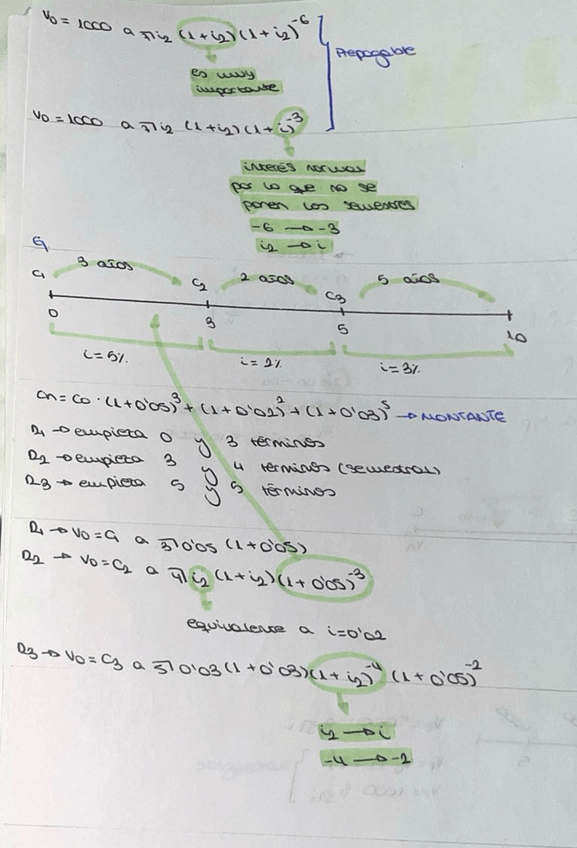 V0 = 1000 a 7̅| i2 (1+i2) (1+i2)^-6
Prepagable
es muy
importante
V0 = 1000 a 7̅| i2 (1+i2) (1+i)^-3
interés normal
por lo que no se
ponen los semestres
-6 → -3
i2 → i
C1 3 años C2 2 años C3 5 años
0 3 5 10
i=5% i=2% i=3%
Cn = C0 · (1+0'05)^3 + (1+0'02)^2 + (1+0'03)^5 → MONTANTE
R1 → empieza 0 y 3 términos
R2 → empieza 3 y 4 términos (semestral)
R3 → empieza 5 y 5 términos
R1 → V0 = C1 a 3̅| 0'05 (1+0'05)
R2 → V0 = C2 a 4̅| i2 (1+i2) (1+0'05)^-3
equivalente a i=0'02
R3 → V0 = C3 a 5̅| 0'03 (1+0'03) (1+i2)^-4 (1+0'05)^-2
i2 → i
-4 → -2